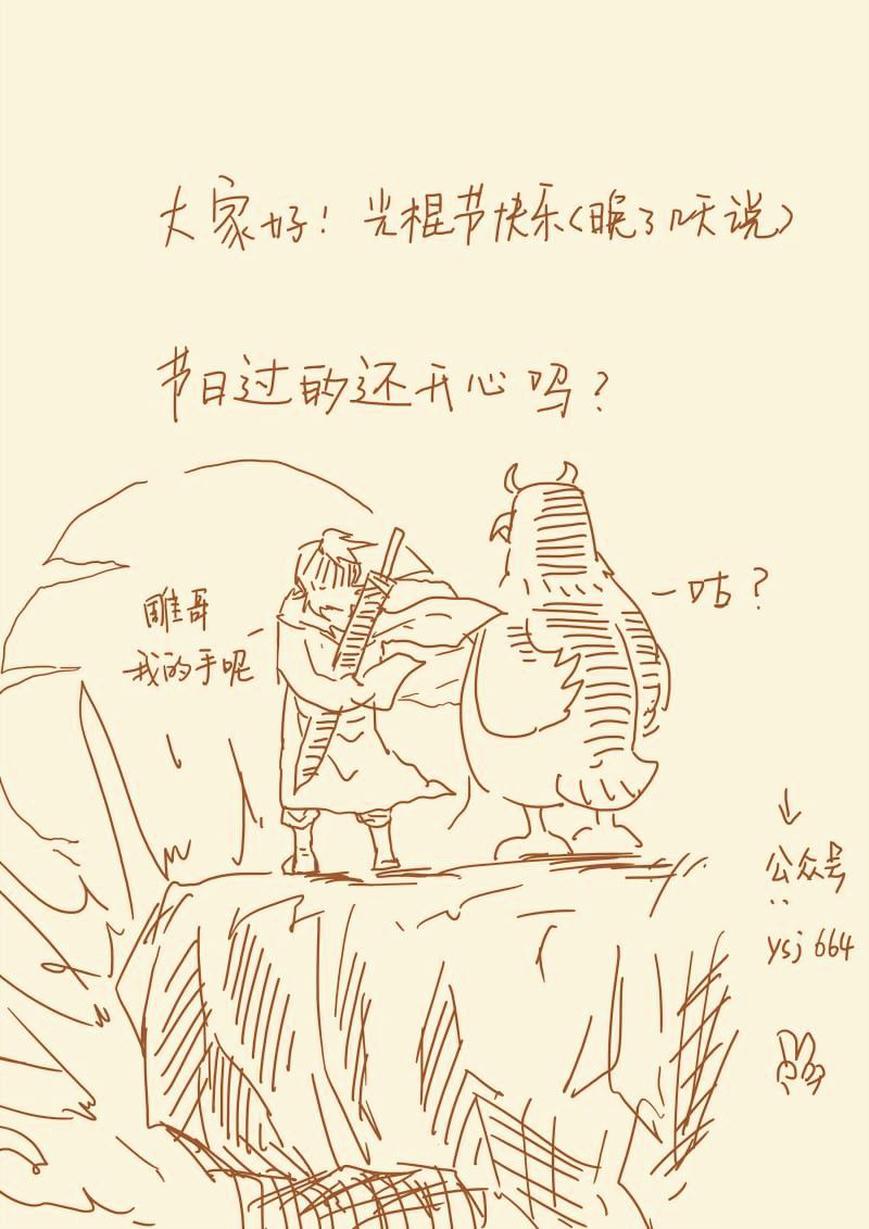 大家好！光棍节快乐（晚了几天说）
节日过的还开心吗？
雕哥
我的手呢
咕？
公众号
：
ysj 664